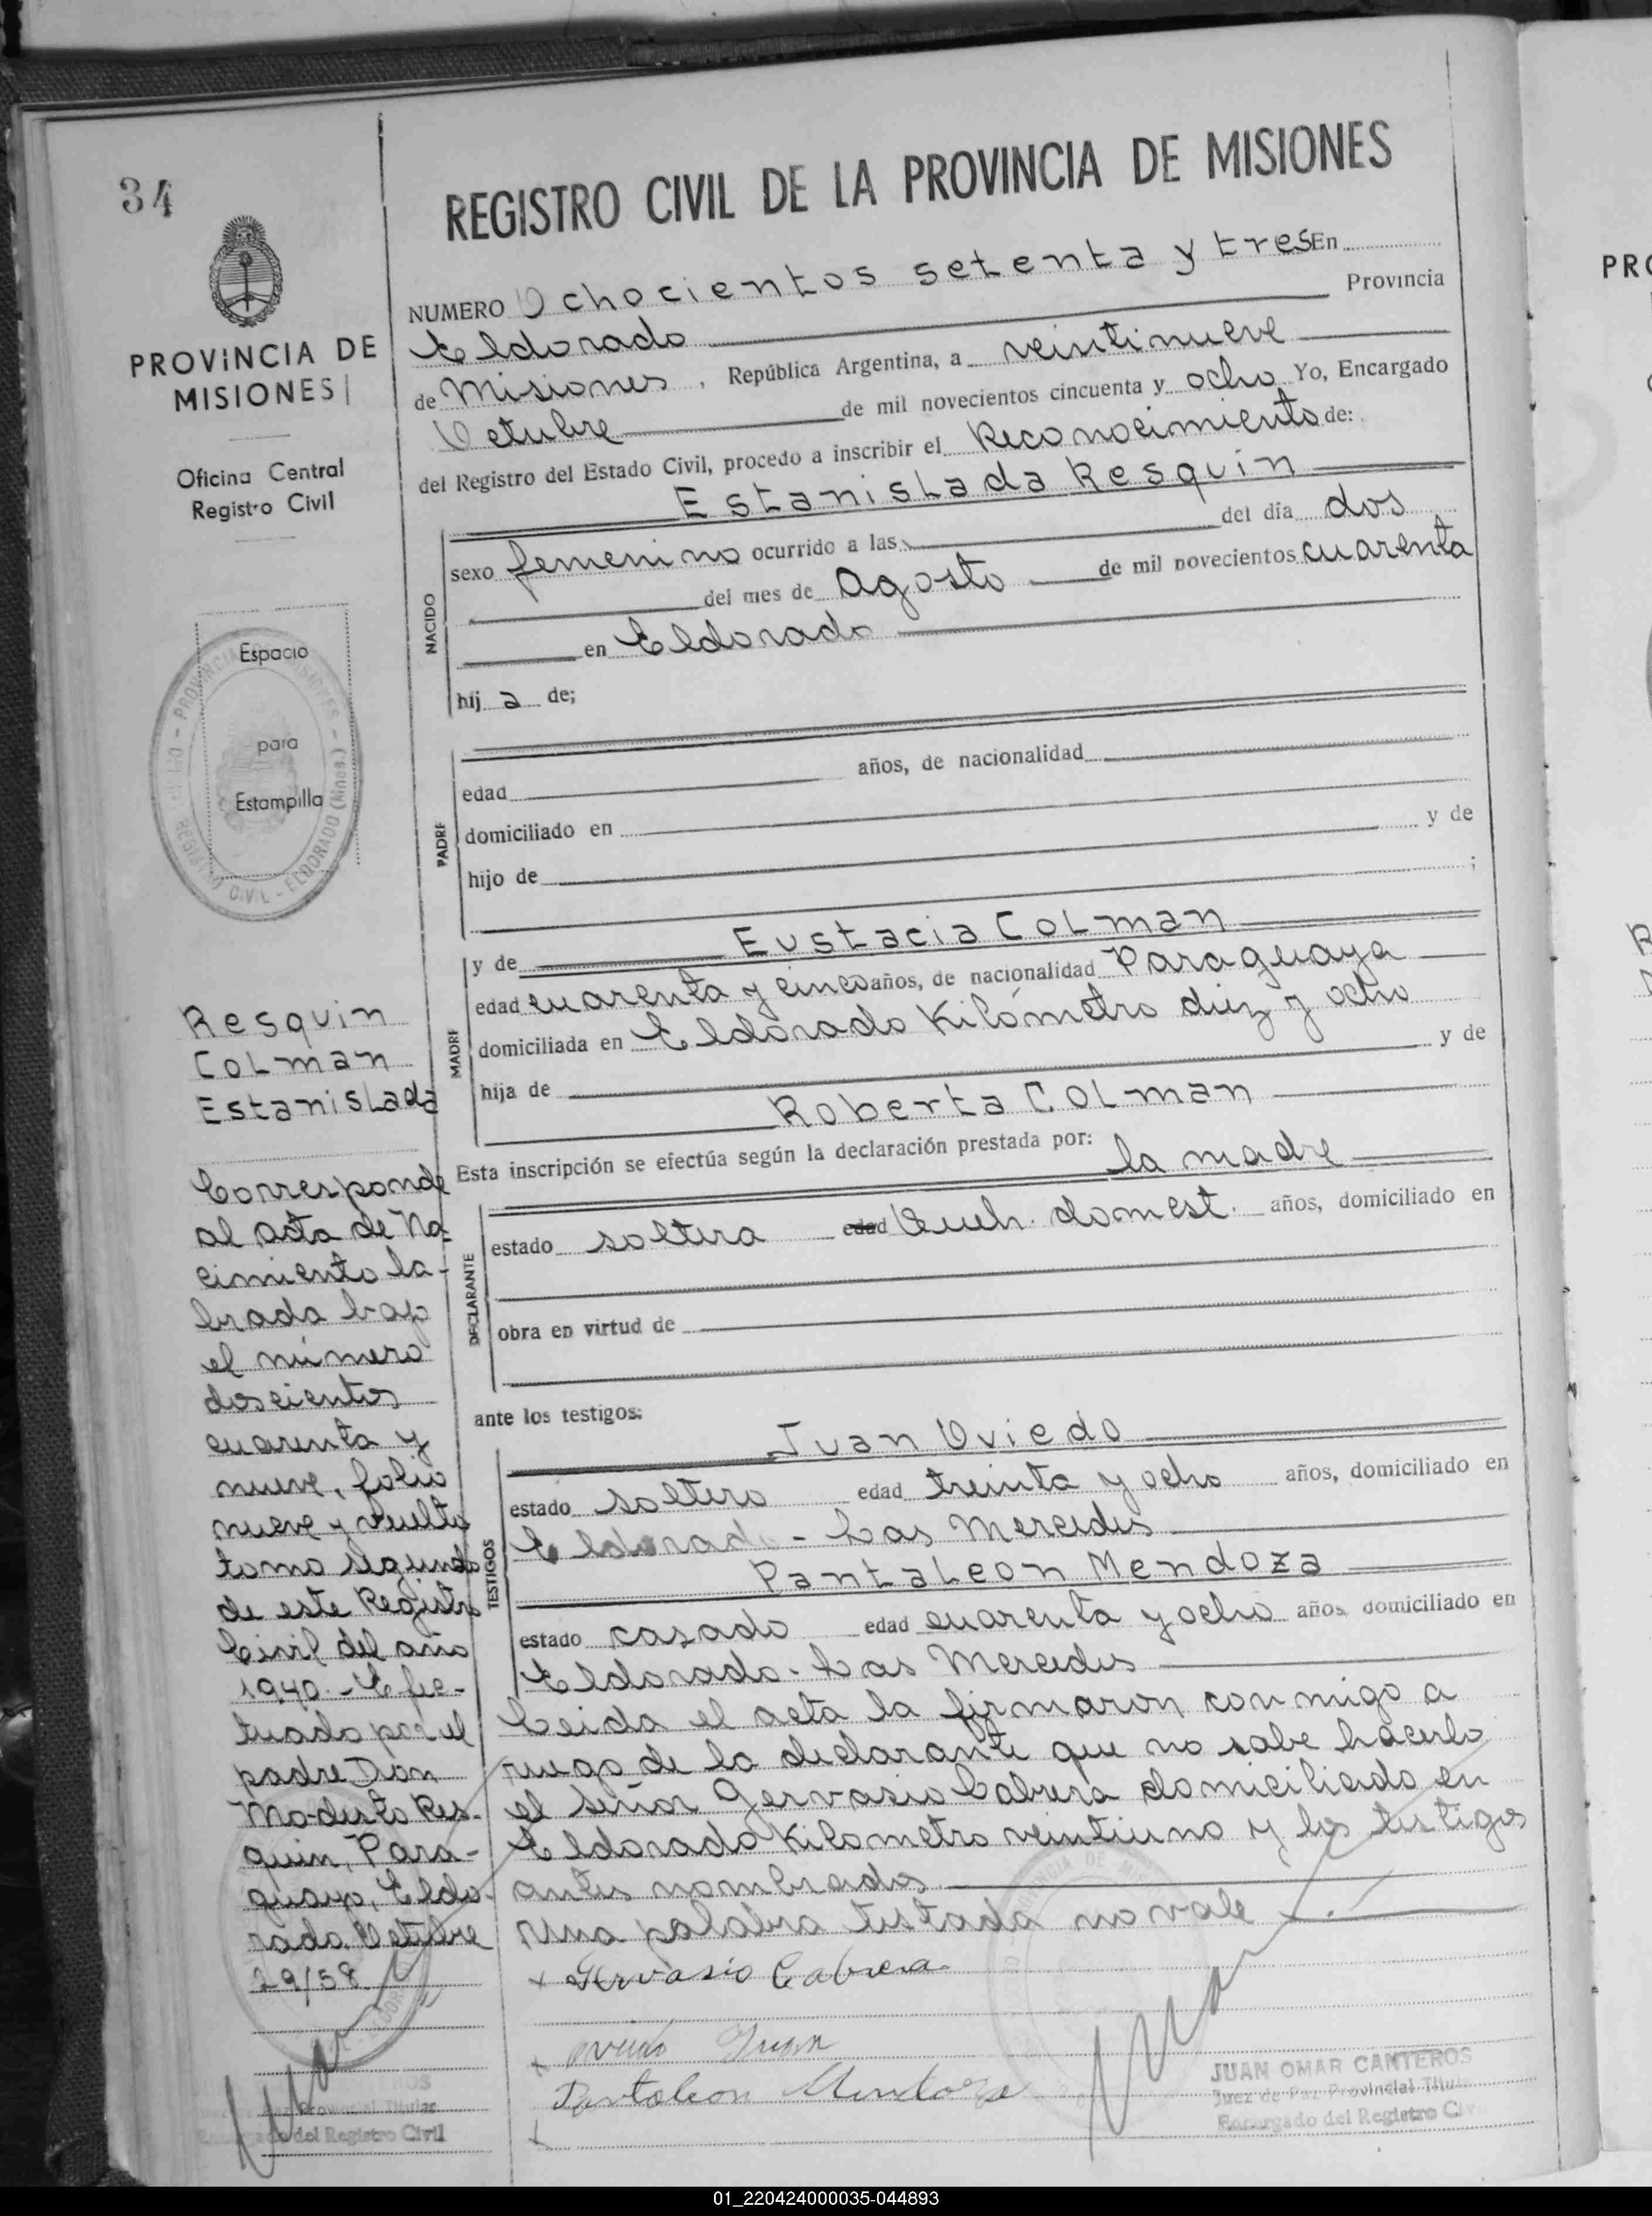 34
REGISTRO CIVIL DE LA PROVINCIA DE MISIONES
PROVINCIA DE
MISIONES
Oficina Central
Registro Civil
Espacio
para
Estampilla
NUMERO Ochocientos setenta y tres En
Eldorado Provincia
de Misiones, República Argentina, a veintinueve
Octubre de mil novecientos cincuenta y ocho Yo, Encargado
del Registro del Estado Civil, procedo a inscribir el Reconocimiento de:
Estanislada Resquin
NACIDO
sexo femenino ocurrido a las del día dos
del mes de Agosto de mil novecientos cuarenta
en Eldorado
hij a de;
PADRE
edad años, de nacionalidad
domiciliado en
hijo de y de
;
MADRE
y de Eustacia Colman
edad cuarenta y cinco años, de nacionalidad Paraguaya
domiciliada en Eldorado Kilómetro diez y ocho
hija de y de
Roberta Colman
Esta inscripción se efectúa según la declaración prestada por:
la madre
DECLARANTE
estado soltera edad Queh. domest. años, domiciliado en
obra en virtud de
ante los testigos:
Juan Oviedo
TESTIGOS
estado soltero edad treinta y ocho años, domiciliado en
Eldorado - Las Mercedes
Pantaleon Mendoza
estado casado edad cuarenta y ocho años, domiciliado en
Eldorado - Las Mercedes
Leida el acta la firmaron conmigo a
ruego de la declarante que no sabe hacerlo
el señor Gervasio Cabrera domiciliado en
Eldorado Kilometro veintiuno y los testigos
antes nombrados.
Una palabra testada no vale
x Gervasio Cabrera
x Oviedo Juan
Pantaleon Mendoza
x
JUAN OMAR CANTEROS
Juez de Paz Provincial Titular
Encargado del Registro Civil
Resquin
Colman
Estanislada
Corresponde
al acta de Na-
cimiento la-
brada bajo
el número
doscientos
cuarenta y
nueve, folio
nueve y vuelto
tomo segundo
de este Registro
Civil del año
1940. - Efec-
tuado por el
padre Don
Modesto Res-
quin, Para-
guayo, Eldo-
rado. Octubre
29/58
Provincial Titular
del Registro Civil
PRO
01_220424000035-044893